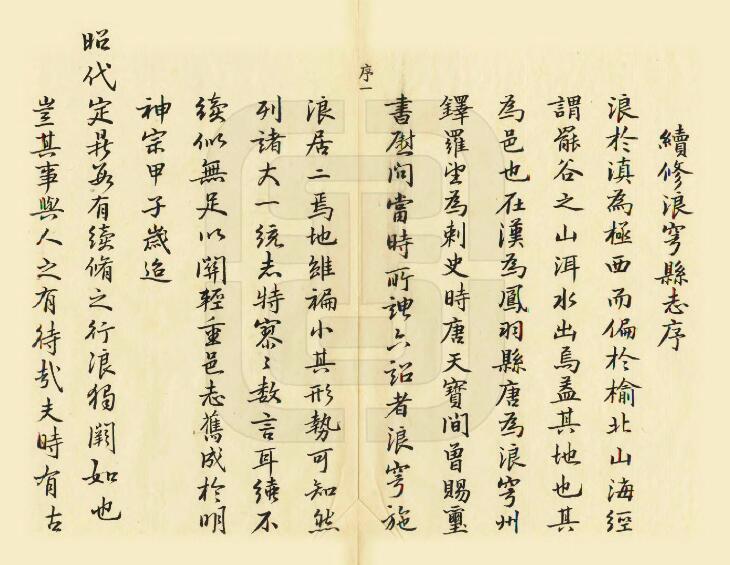 續修浪穹縣志序
浪於滇為極西而偏於榆北山海經
謂罷谷之山洱水出焉蓋其地也其
為邑也在漢為鳳羽縣唐為浪穹州
鐸羅望為刺史時唐天寶間曾賜璽
書慰問當時所謂六詔者浪穹施
序一
浪居二焉地雖褊小其形勢可知然
列諸大一統志特寥〻数言耳續不
續似無足以關輕重邑志舊成於明
神宗甲子歲迨
昭代定鼎 有續脩之行浪獨闕如也
豈其事與人之有待哉夫時有古